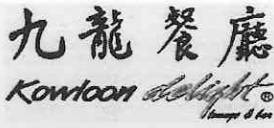 九龍餐廳
Kowloon delight ®
lounge & bar